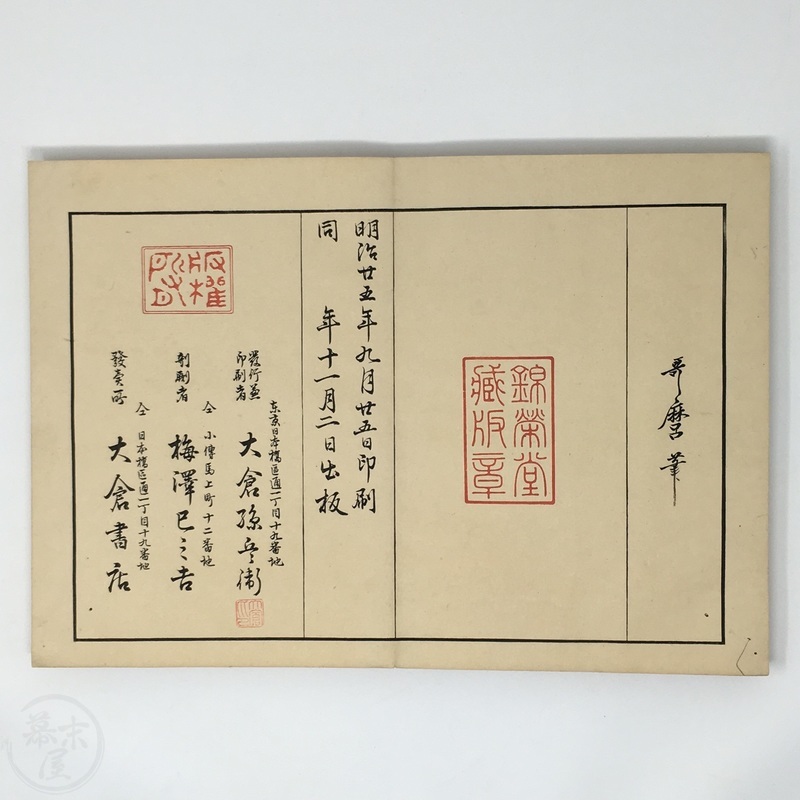 哥麿筆
錦榮堂
藏版章
明治廿五年九月廿五日印刷
同 年十一月二日出板
版權
所有
發行兼
印刷者
東京日本橋區通一丁目十九番地
大倉孫兵衛
彫刻者
仝 小傳馬上町十二番地
梅澤巳之吉
發賣所
仝 日本橋區通一丁目十九番地
大倉書店
幕末屋